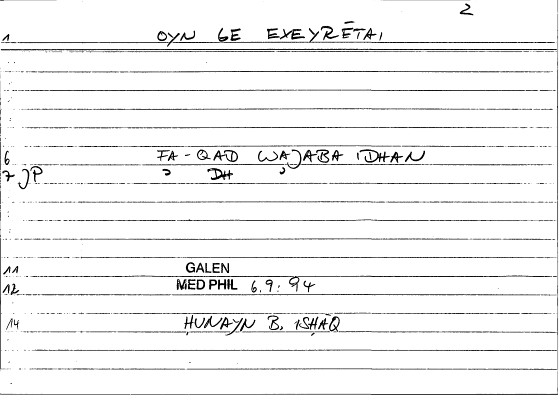 2
1 OYN GE EXEYRĒTAI
6 FA-QAD WAJABA IDHAN
7 JP ɔ DH ɔ
11 GALEN
12 MED PHIL 6.9: 94
14 ḤUNAYN B. ISḤĀQ